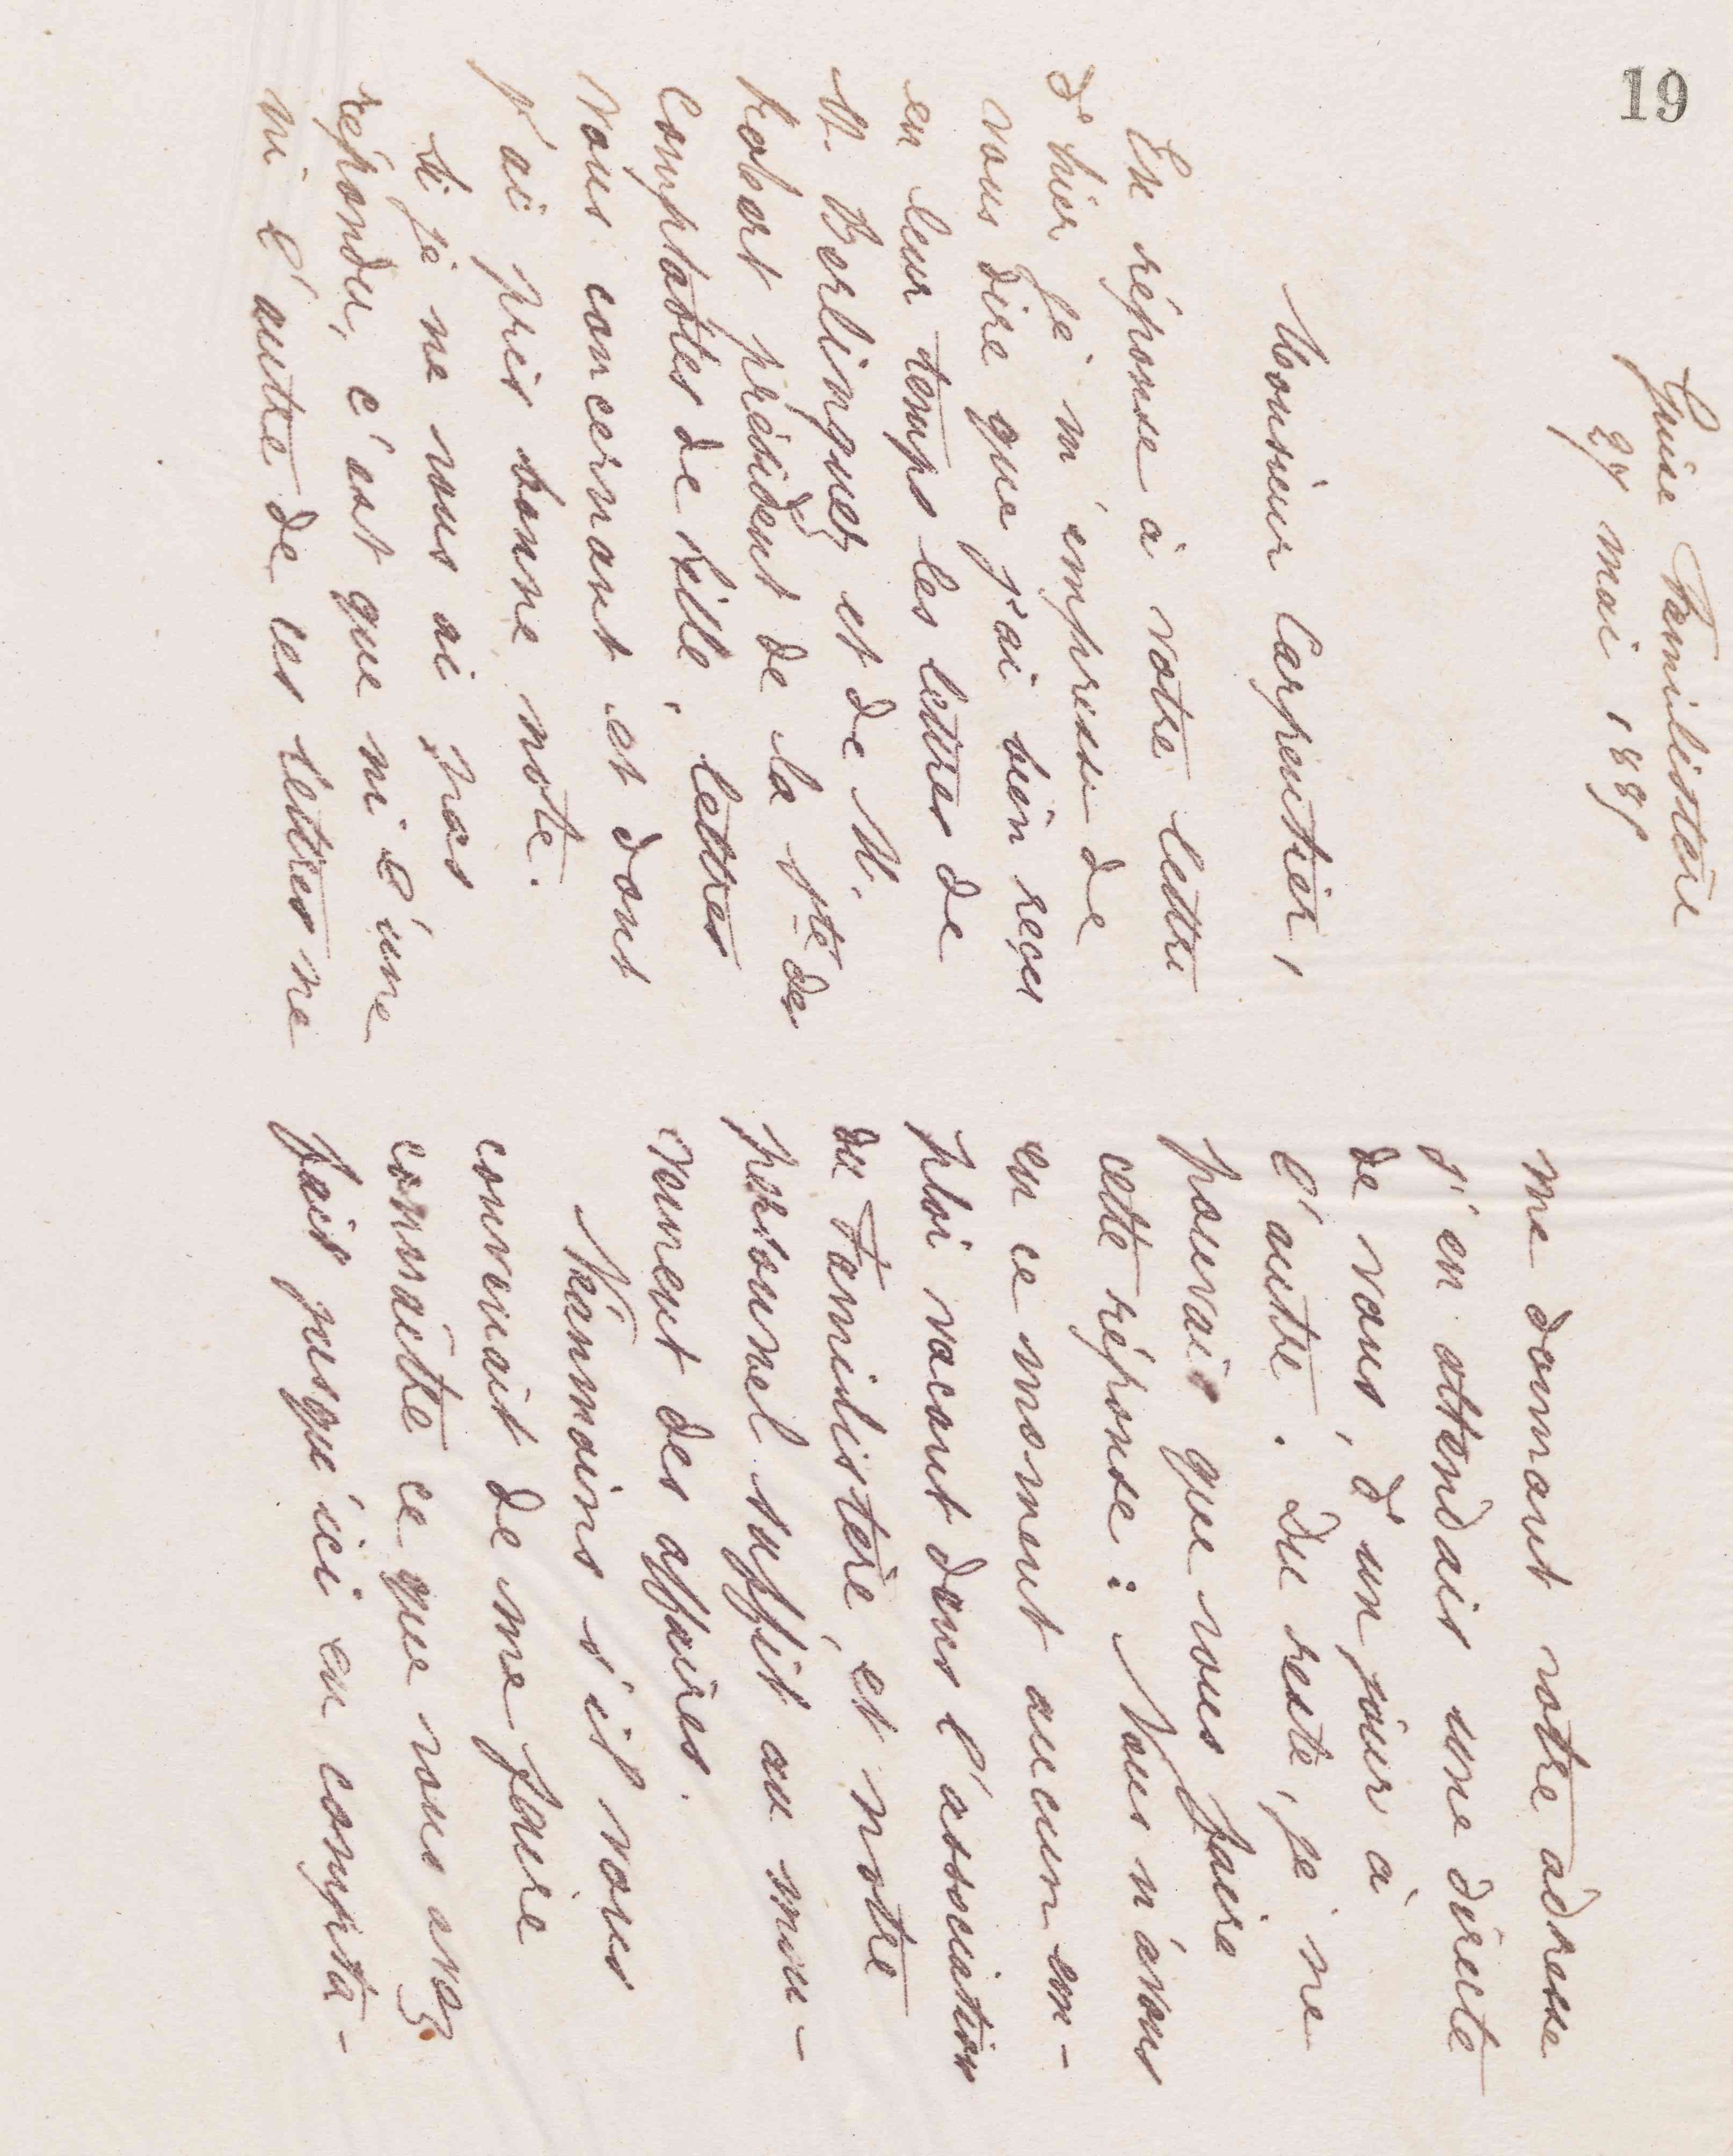 19
Guise Familistère
27 mai 1881
Monsieur Carpentier,
En réponse à votre lettre
d'hier je m'empresse de
vous dire que j'ai bien reçu
en leur temps les lettres de
M. Berlinguez et de M.
hobart président de la Sté de
comptables de Lille, lettres
vous concernant et dont
j'ai pris bonne note.
Si je ne vous ai pas
répondu, c'est que ni l'une
ni l'autre de ces lettres ne
me donnant votre adresse
j'en attendais une directe
de vous, d'un jour à
l'autre. Du reste, je ne
pouvais que vous faire
cette réponse : Nous n'avons
en ce moment aucun em-
ploi vacant dans l'association
du Familistère, et notre
personnel suffit au mou-
vement des affaires.
Néanmoins s'il vous
convenait de me faire
connaître ce que vous avez
fait jusqu'ici en compta-